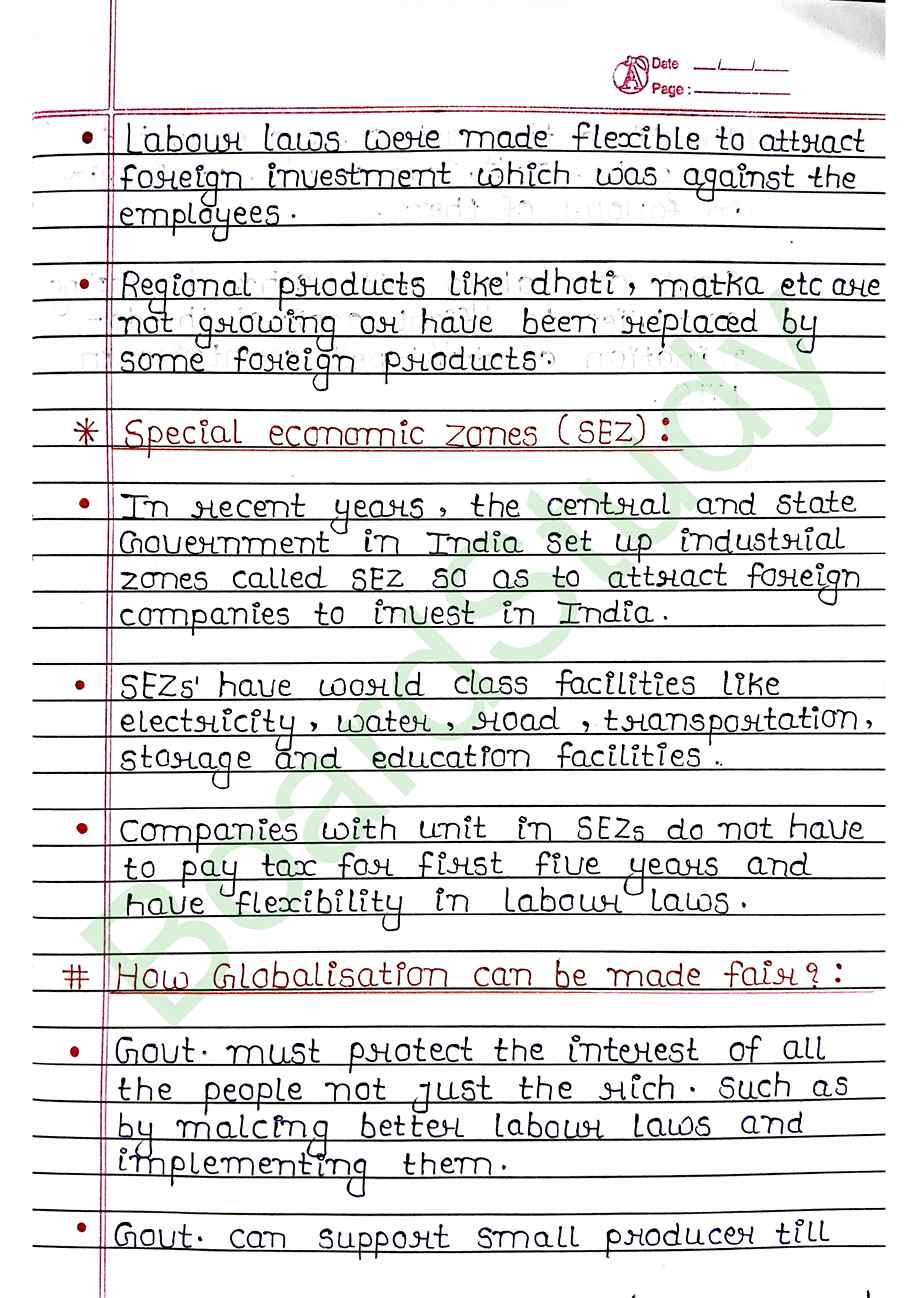 Date __/__/__
Page : ______
• Labour laws were made flexible to attract
foreign investment which was against the
employees.
• Regional products like dhoti, matka etc are
not growing or have been replaced by
some foreign products.
* Special economic zones (SEZ) :
• In recent years, the central and state
Government in India set up industrial
zones called SEZ so as to attract foreign
companies to invest in India.
• SEZs' have world class facilities like
electricity, water, road, transportation,
storage and education facilities.
• Companies with unit in SEZs do not have
to pay tax for first five years and
have flexibility in labour laws.
# How Globalisation can be made fair? :
• Govt. must protect the interest of all
the people not just the rich. Such as
by making better labour laws and
implementing them.
• Govt. can support small producer till
BoardStudy